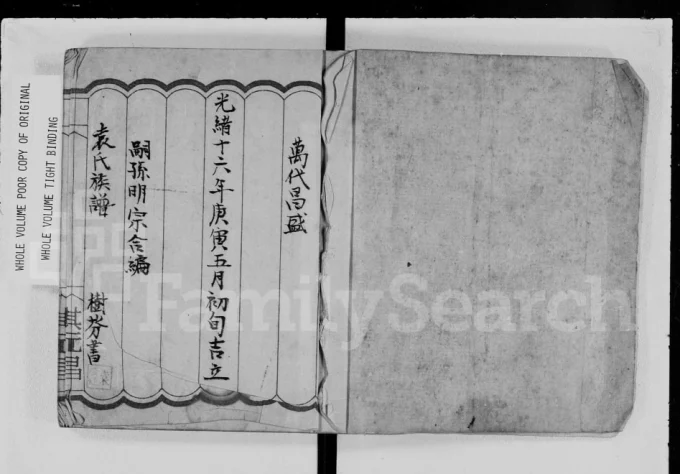 萬代昌盛
光緒十六年庚寅五月初旬吉立
嗣孫明宗合編
袁氏族譜
樹芬書
WHOLE VOLUME POOR COPY OF ORIGINAL
WHOLE VOLUME TIGHT BINDING
FamilySearch